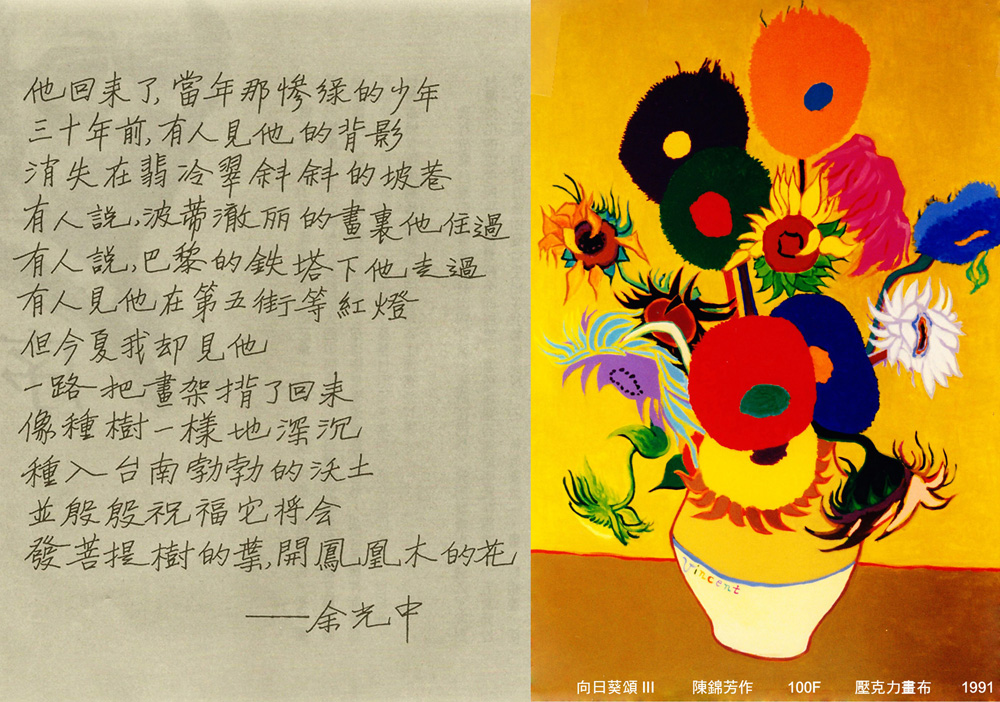 他回来了,當年那慘綠的少年
三十年前,有人見他的背影
消失在翡冷翠斜斜的坡巷
有人說,波蒂澈丽的畫裏他住過
有人說,巴黎的鉄塔下他走過
有人見他在第五街等紅燈
但今夏我却見他
一路把畫架揹了回来
像種樹一樣地深沉
種入台南勃勃的沃土
並殷殷祝福它将会
發菩提樹的葉,開鳳凰木的花
——余光中
Vincent
向日葵頌 III 陳錦芳作 100F 壓克力畫布 1991